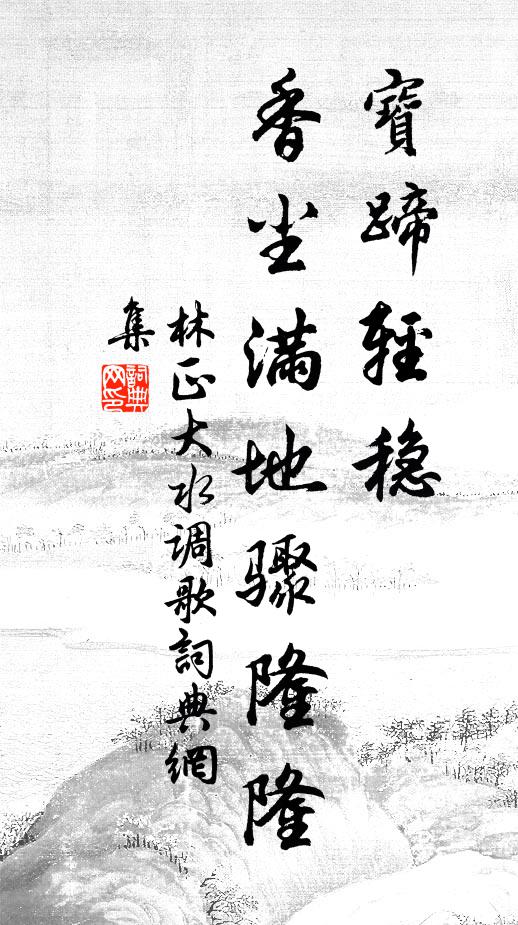 寶蹄輕穏
香尘满地驟隆隆
林正大水调歌詞典網
集
詞典网印